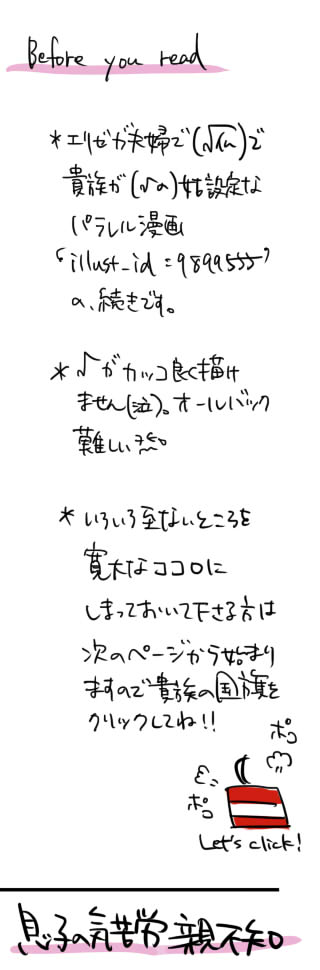 Before you read
*エリゼが夫婦で(√仏)で
貴族が(√の)姑設定な
パラレル漫画
‘illust_id=9899555’
の、続きです。
*√がカッコ良く描け
ません(泣)。オールバック
難しい然。
*いろいろ至ないところを
寛大なココロに
しまっておいて下さる方は
次のページから始まり
ますので貴族の国旗を
クリックしてね!!
ポコ
ポコ
Let's click!
息子の気苦労親不知。